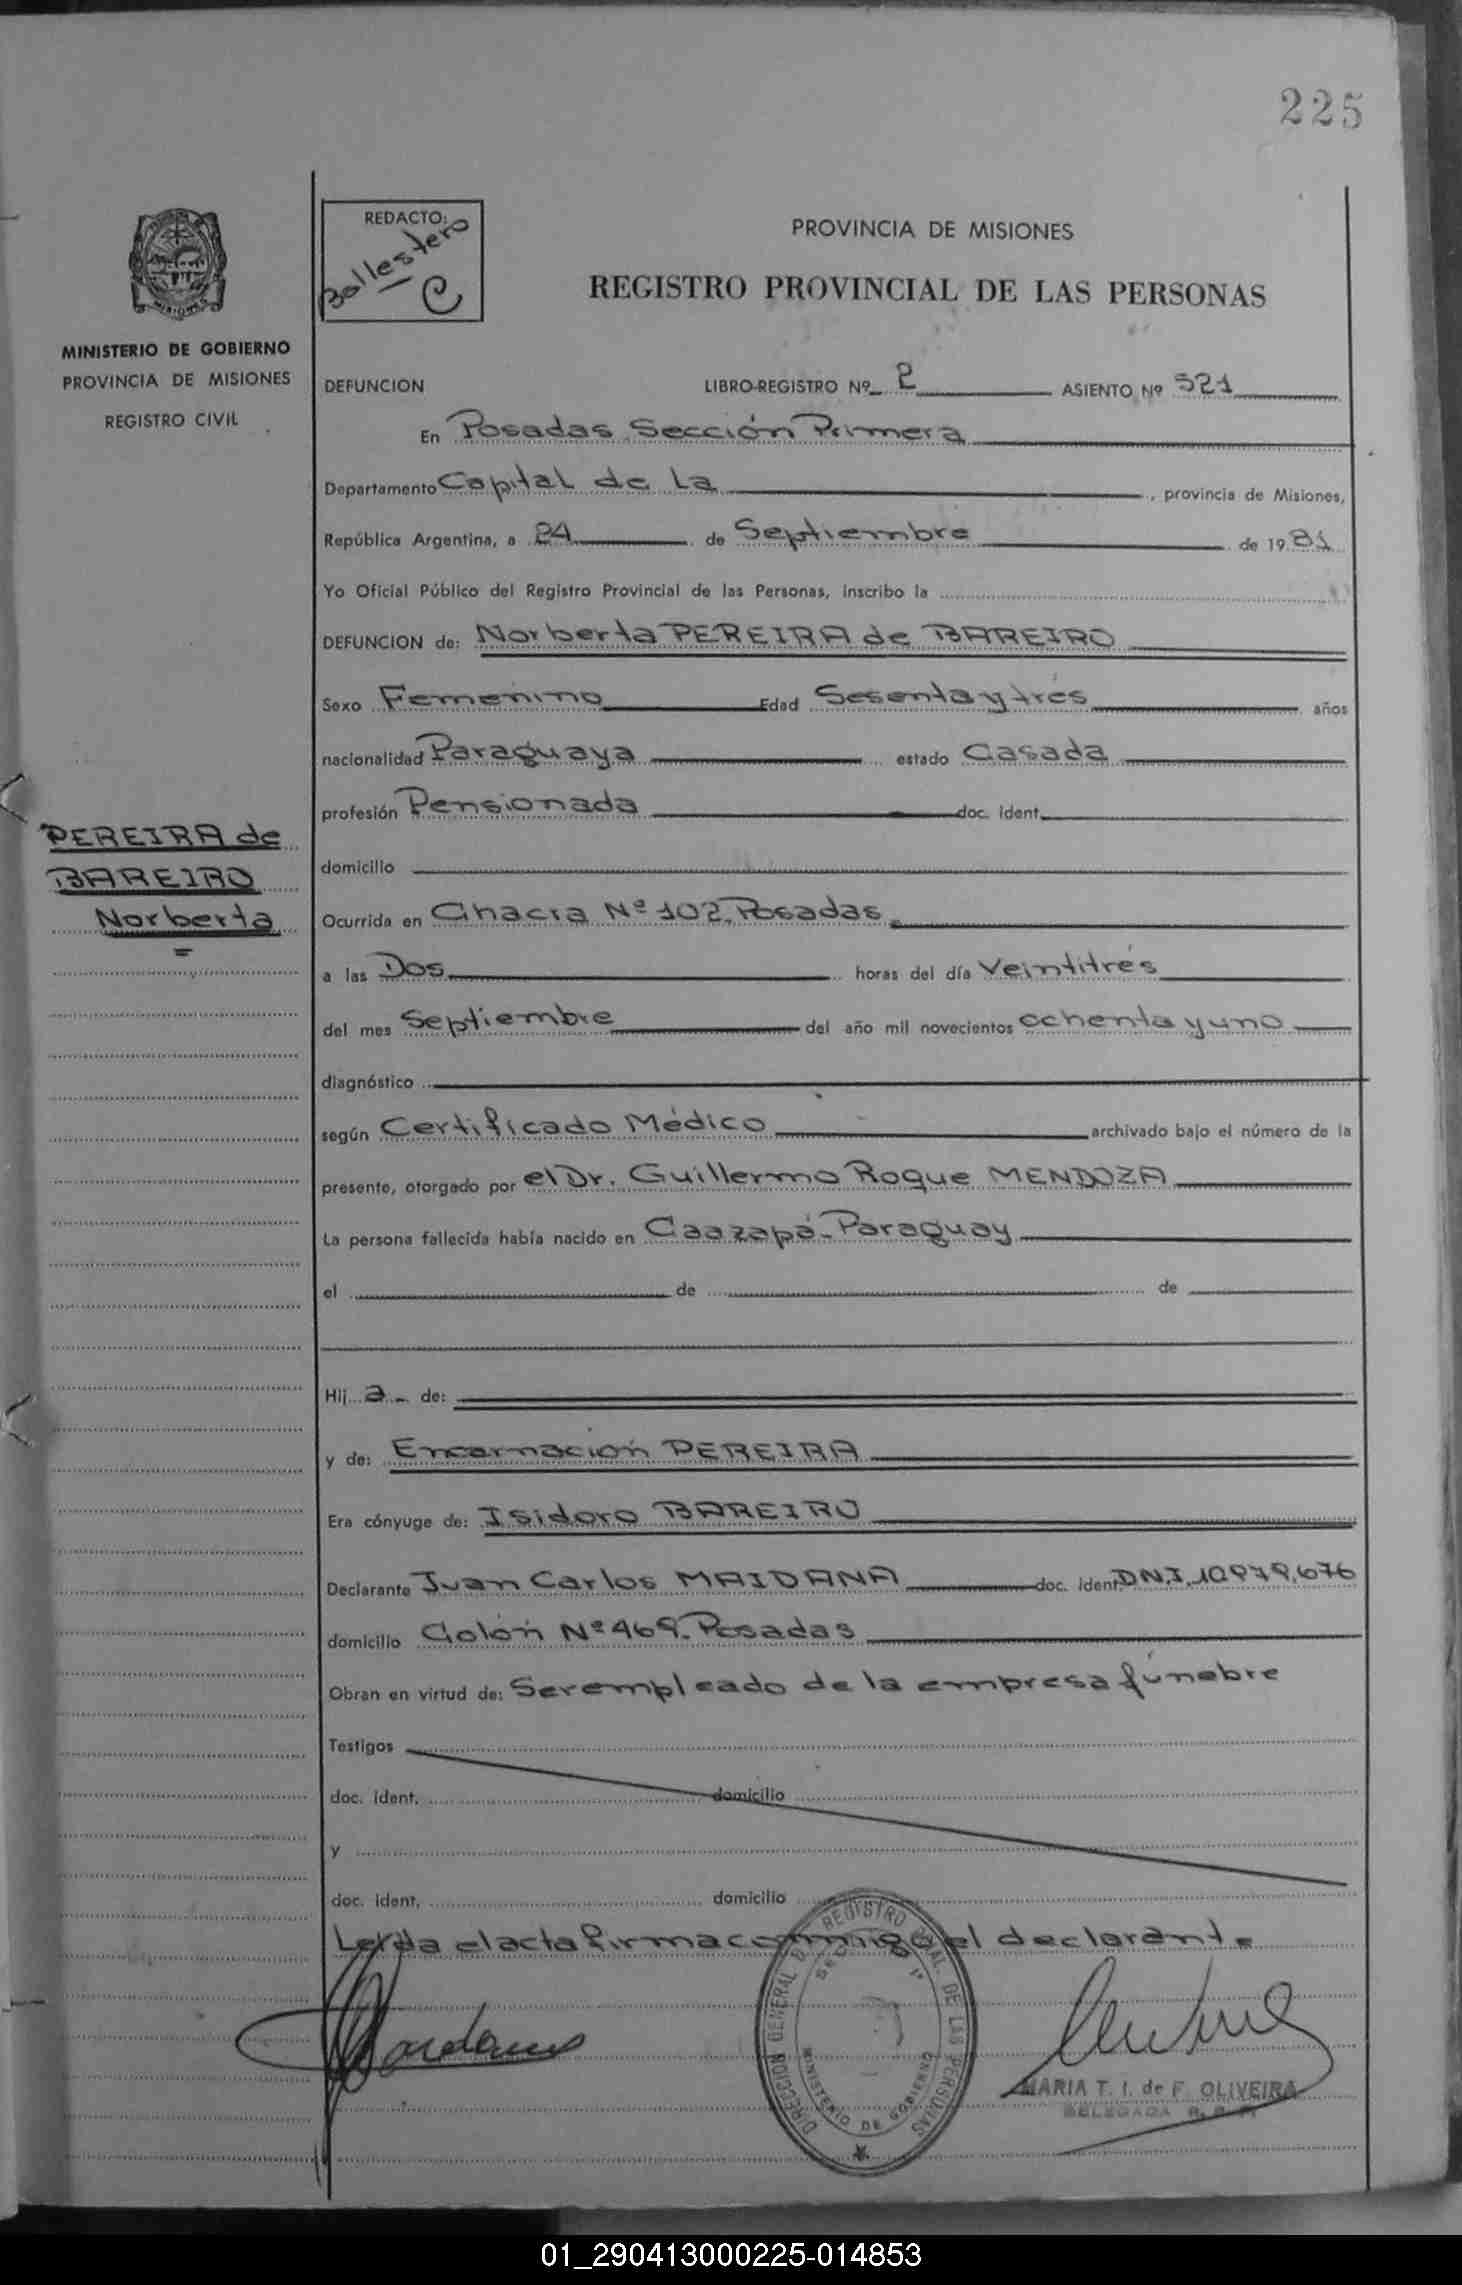 225
REDACTO:
Ballestero
C
PROVINCIA DE MISIONES
REGISTRO PROVINCIAL DE LAS PERSONAS
MISIONES
MINISTERIO DE GOBIERNO
PROVINCIA DE MISIONES
REGISTRO CIVIL
DEFUNCION LIBRO-REGISTRO Nº 2 ASIENTO Nº 521
En Posadas Sección Primera
Departamento Capital de La, provincia de Misiones,
República Argentina, a 24 de Septiembre de 1981
Yo Oficial Público del Registro Provincial de las Personas, inscribo la
DEFUNCION de: Norberta PEREIRA de BAREIRO
Sexo Femenino Edad Sesenta y tres años
nacionalidad Paraguaya estado Casada
profesión Pensionada doc. ident.
domicilio
PEREIRA de
BAREIRO
Norberta
Ocurrida en Chacra Nº 102. Posadas.
a las Dos horas del día Veintitrés
del mes Septiembre del año mil novecientos ochenta y uno
diagnóstico
según Certificado Médico archivado bajo el número de la
presente, otorgado por el Dr. Guillermo Roque MENDOZA
La persona fallecida había nacido en Caazapá-Paraguay
el de de
Hij a de:
y de: Encarnación PEREIRA
Era cónyuge de: Isidoro BAREIRO
Declarante Juan Carlos MAIDANA doc. ident. DN.I. 10.979.676
domicilio Colón Nº 469. Posadas
Obran en virtud de: Ser empleado de la empresa fúnebre
Testigos
doc. ident. domicilio
y
doc. ident. domicilio
Leída el acta firma conmigo el declarante
DIRECCION GENERAL DEL REGISTRO PCIAL. DE LAS PERSONAS
SECC. 1ª
MINISTERIO DE GOBIERNO
MARIA T. I. de F. OLIVEIRA
DELEGADA R. P. P.
01_290413000225-014853